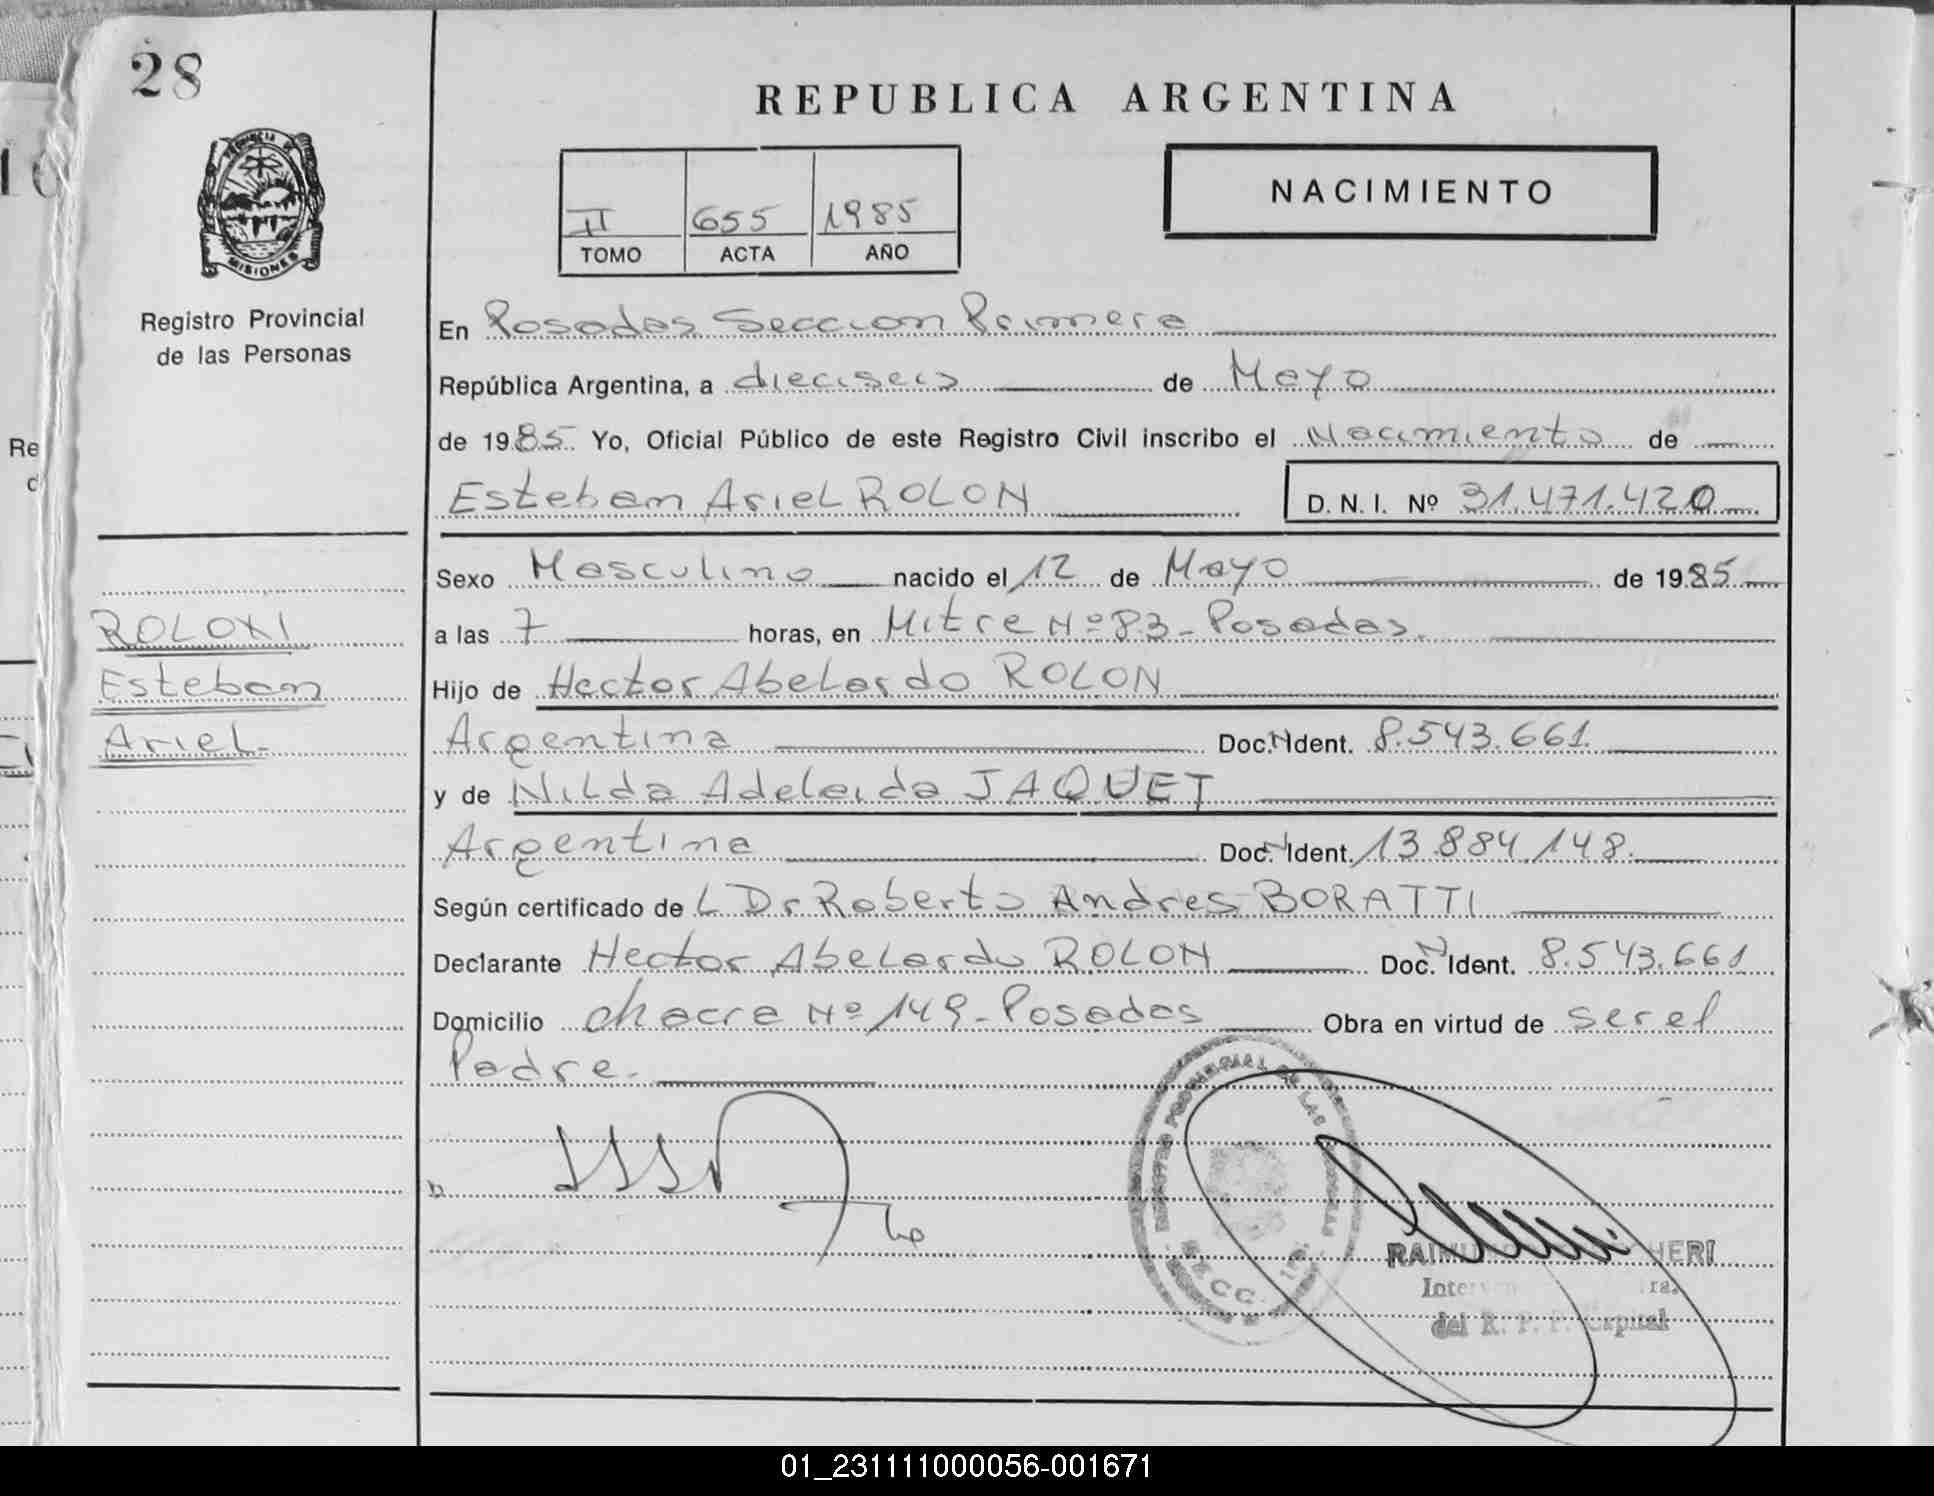 28
REPUBLICA ARGENTINA
PROVINCIA DE
MISIONES
Registro Provincial
de las Personas
II 655 1985
TOMO ACTA AÑO
NACIMIENTO
En Posadas Seccion Primera
República Argentina, a dieciseis de Mayo
de 1985. Yo, Oficial Público de este Registro Civil inscribo el Nacimiento de
Esteban Ariel ROLON D. N. I. Nº 31.471.420
Sexo Masculino nacido el 12 de Mayo de 1985
a las 7 horas, en Mitre Nº 83 - Posadas.
Hijo de Hector Abelardo ROLON
Argentina Doc. N Ident. 8.543.661.
y de Nilda Adelaida JAQUET
Argentina Doc. N Ident. 13.884.148.
Según certificado de L Dr Roberto Andres BORATTI
Declarante Hector Abelardo ROLON Doc. N Ident. 8.543.661
Domicilio chacra Nº 149 - Posadas Obra en virtud de ser el
Padre.
ROLON
Esteban
Ariel.
REGISTRO PROVINCIAL DE LAS PERSONAS
SECC. 1ra.
del R. P. P. Capital
01_231111000056-001671